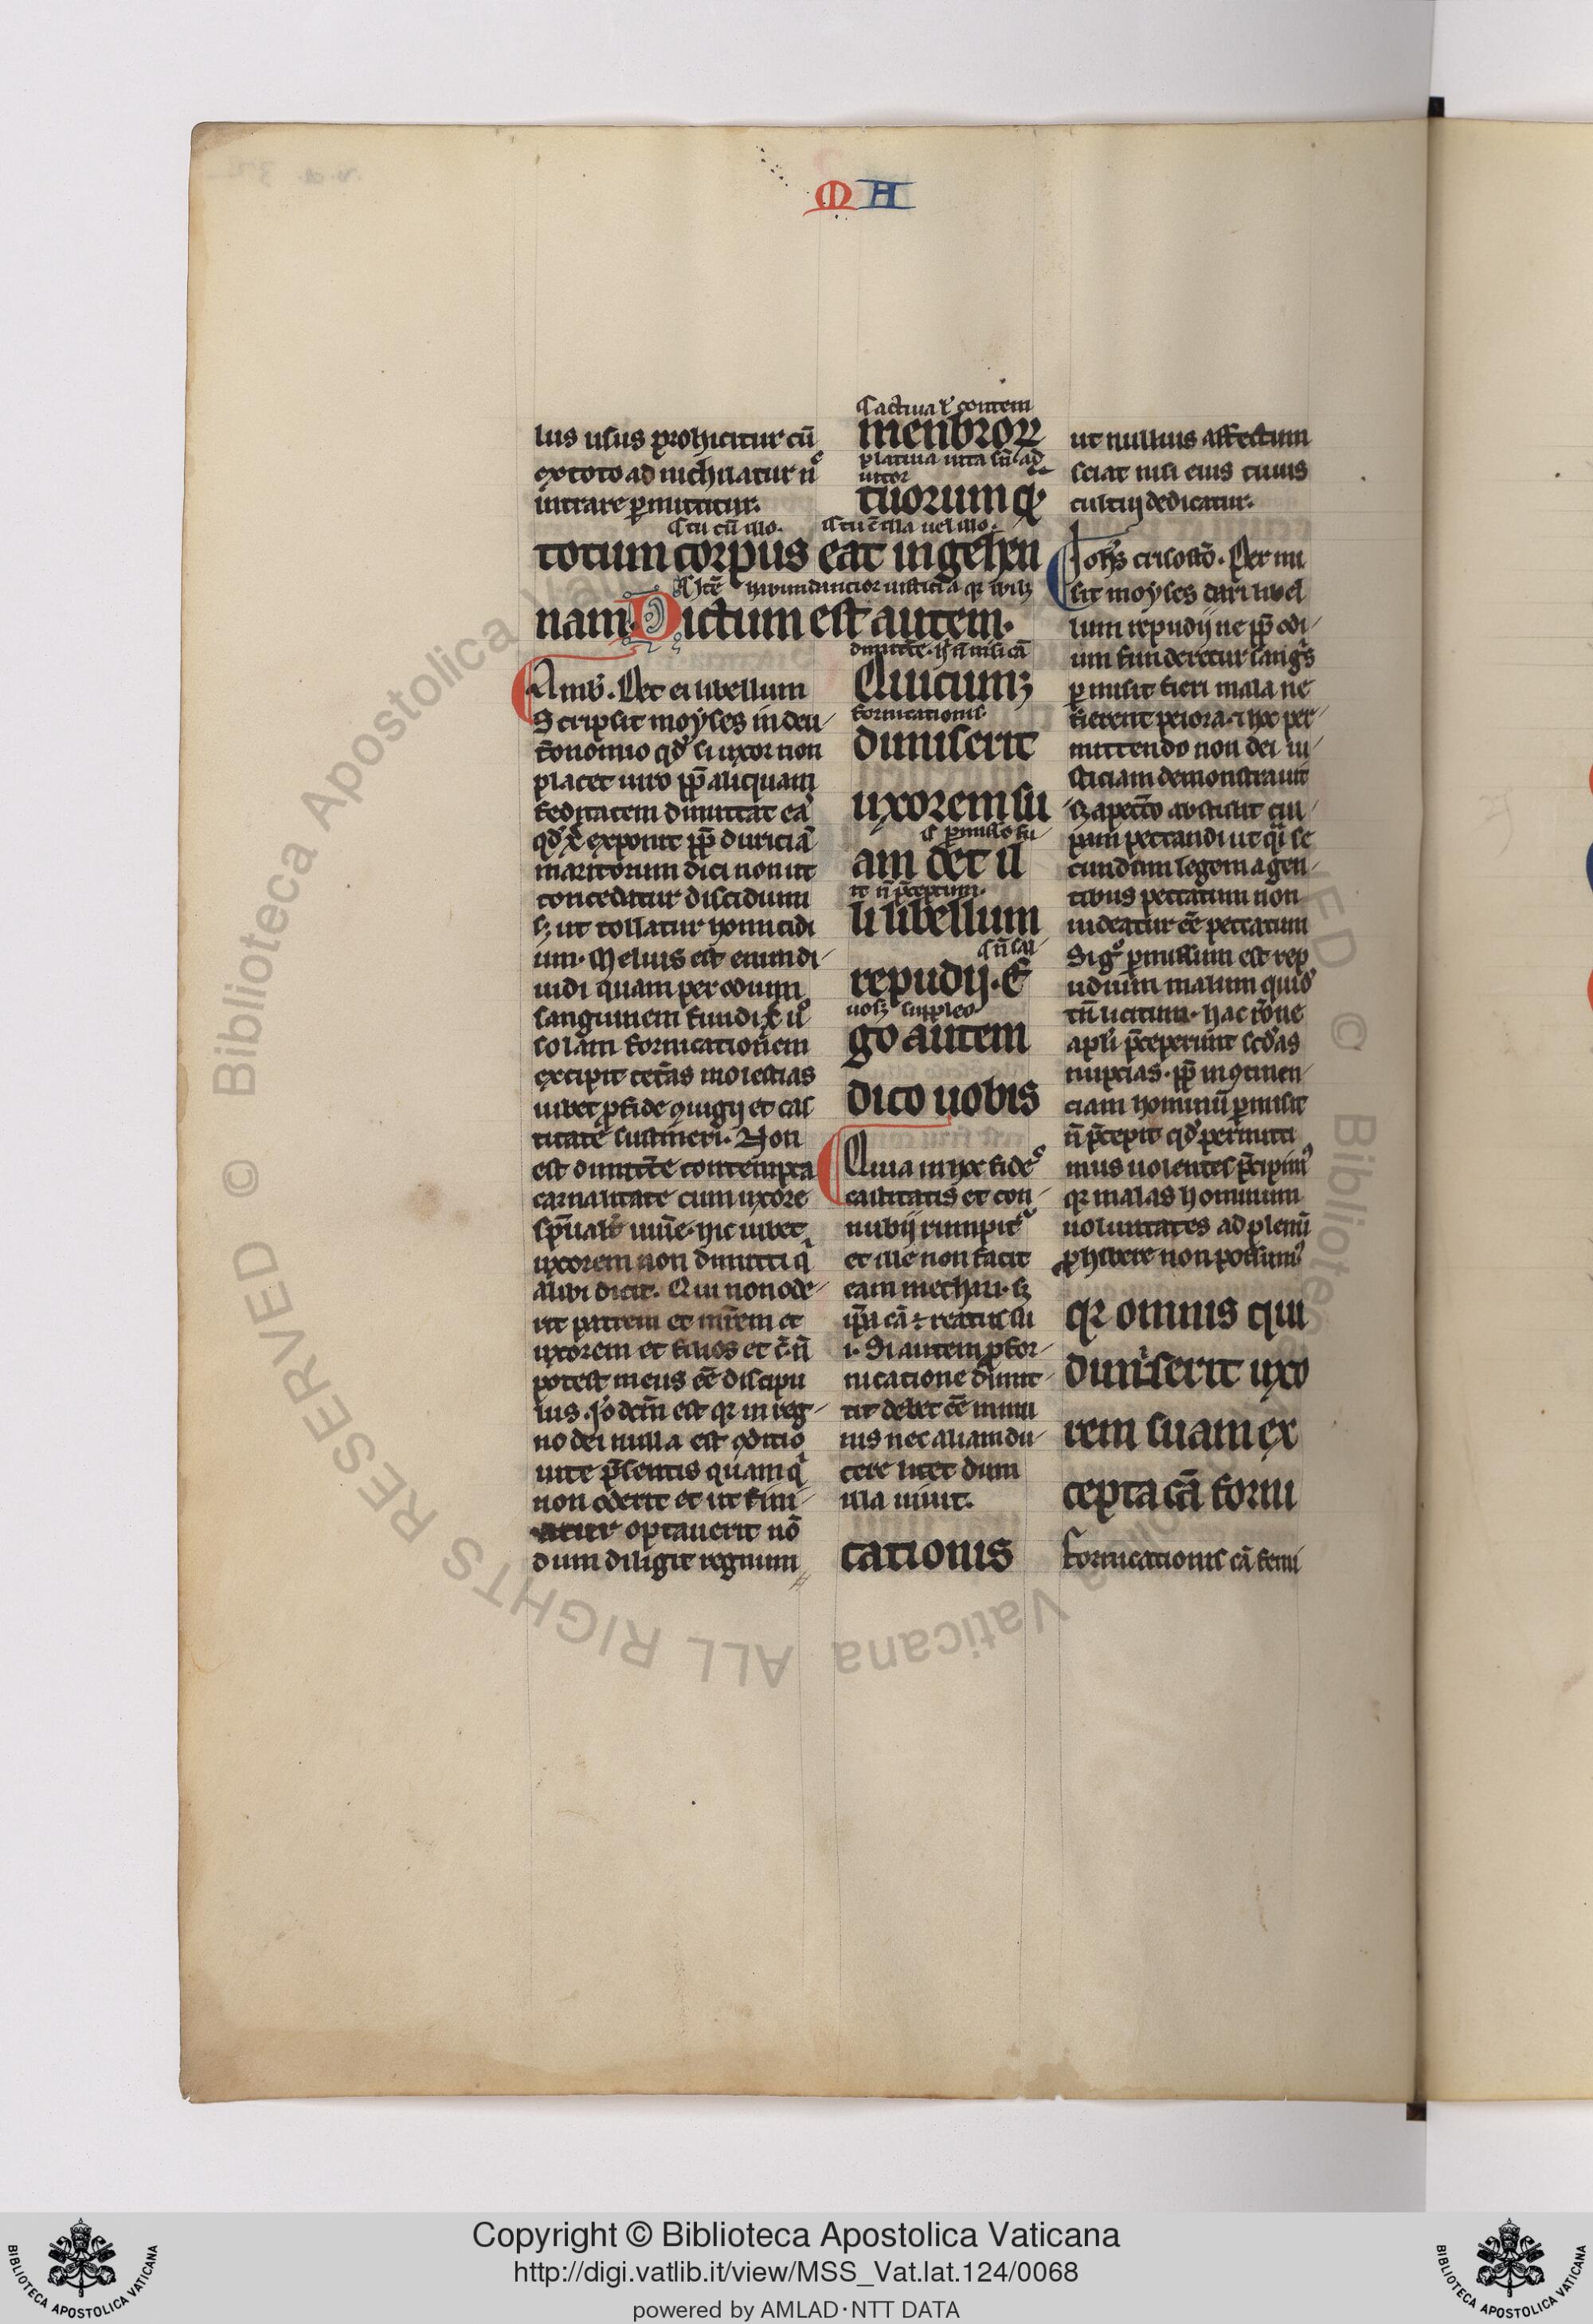 MA
lus usus prohicitur cū
ex toto ad nichilatur n͛
intrare ꝑmittitur.
actiua ł contem
menbroꝝ
platiua uita
tuorum qͣ
ut nullius affectum
sciat nisi eius cuius
cultui dedicatur.
tu cū illo.
totum corpus eat in gehen
nam. Dictum est autem.
Ambꝰ. Det ei libellum
Scripsit moyses in deu
tonomio qd̓ si uxor non
placet uiro ꝓp̄ aliquam
feditatem dimittat eā
qd̓ xp̄c exponit ꝓp̄ duriciā
maritorum dici non ut
concedatur discidium
sꝫ ut tollatur homicidi
um. Melius est enim di
uidi quam per odium
sanguinem fundi. xp̄c ū
solam fornicationem
excipit cet̄as molestias
iubet ꝓ fide ꝯiugij et cas
titate sustineri. Non
est dimitt̄e contempta
carnalitate cum uxore
sp̄ualr̄ uiuēe. hic iubet
uxorem non dimitti q̄
alibi dicit. Qui non ode
rit patrem et mr̄em et
uxorem et filios et c̄. n̄
potest meus ēe discipu
lus. Iō dcm̄ est qꝛ in reg
no dei nulla est ꝯditio
uite p̄sentis quam q̄
non oderit et ut fini
atur optauerit nō
dum diligit regnum
dimitt̄e. h n̄ nisi cā
Quicumqꝫ
fornicationis
dimiserit
uxorem su
ꝑmissio fu
am det il
it n̄ p̄ceptum.
li libellum
repudij. E
suppleo
go autem
dico uobis
Quia in hoc fides
castitatis et con
nubij rumpit͛
et ille non facit
eam mechari. sꝫ
ip̄a cā ÷ reatus su
i. Si autem ꝓ for
nicatione dimit
tit debet ēe inmu
nis nec aliam du
cere licet dum
illa uiuit.
cationis
Ioh̄s crisostō. Per mi
sit moyses dari libel
lum repudij ne ꝓp̄ odi
um funderetur sangꝰs
ꝑmisit fieri mala ne
fierent peiora. ⁊ hoc per
mittendo non dei iu
sticiam demonstrauit
sꝫ a pecc̄to abstulit cul
pam peccandi ut q̄i se
cundum legem agen
tibus peccatum non
uideatur ēe peccatum
Sigͦ ꝑmissum est rep
udium malum quid̓
tn̄ licitum. hac rōne
apl̄i p̄ceperunt sc̄das
nupcias. ꝓp̄ inꝯtinen
ciam hominū ꝑmisit
n̄ p̄cepit qd̓ permitti
mus uolentes p̄cipimꝰ
qꝛ malas hominum
uoluntates ad plenū
ꝓhibere non possumꝰ
qꝛ omnis qui
dimiserit uxo
rem suam ex
cepta cā forni
fornicationis cā
Copyright © Biblioteca Apostolica Vaticana
http://digi.vatlib.it/view/MSS_Vat.lat.124/0068
powered by AMLAD·NTT DATA
BIBLIOTECA APOSTOLICA VATICANA
BIBLIOTECA APOSTOLICA VATICANA